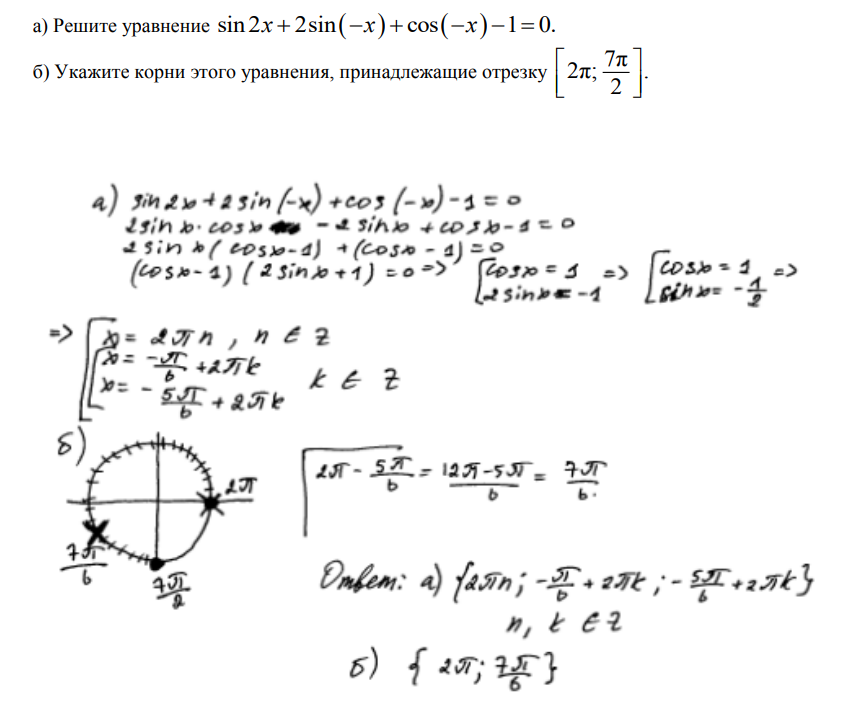 а) Решите уравнение sin 2x + 2 sin(−x) + cos(−x) − 1 = 0.
б) Укажите корни этого уравнения, принадлежащие отрезку [2π; 7π/2].
а) sin 2x + 2 sin (−x) + cos (−x) − 1 = 0
2 sin x · cos x − 2 sin x + cos x − 1 = 0
2 sin x (cos x − 1) + (cos x − 1) = 0
(cos x − 1) (2 sin x + 1) = 0 => [cos x = 1 2 sin x = −1 => [cos x = 1 sin x = −1/2 =>
=> [x = 2πn, n ∈ Z
x = −π/6 + 2πk
x = −5π/6 + 2πk k ∈ Z
б)
2π
7π/6
7π/2
2π − 5π/6 = (12π − 5π)/6 = 7π/6.
Ответ: а) {2πn; −π/6 + 2πk; −5π/6 + 2πk}
n, k ∈ Z
б) {2π; 7π/6}